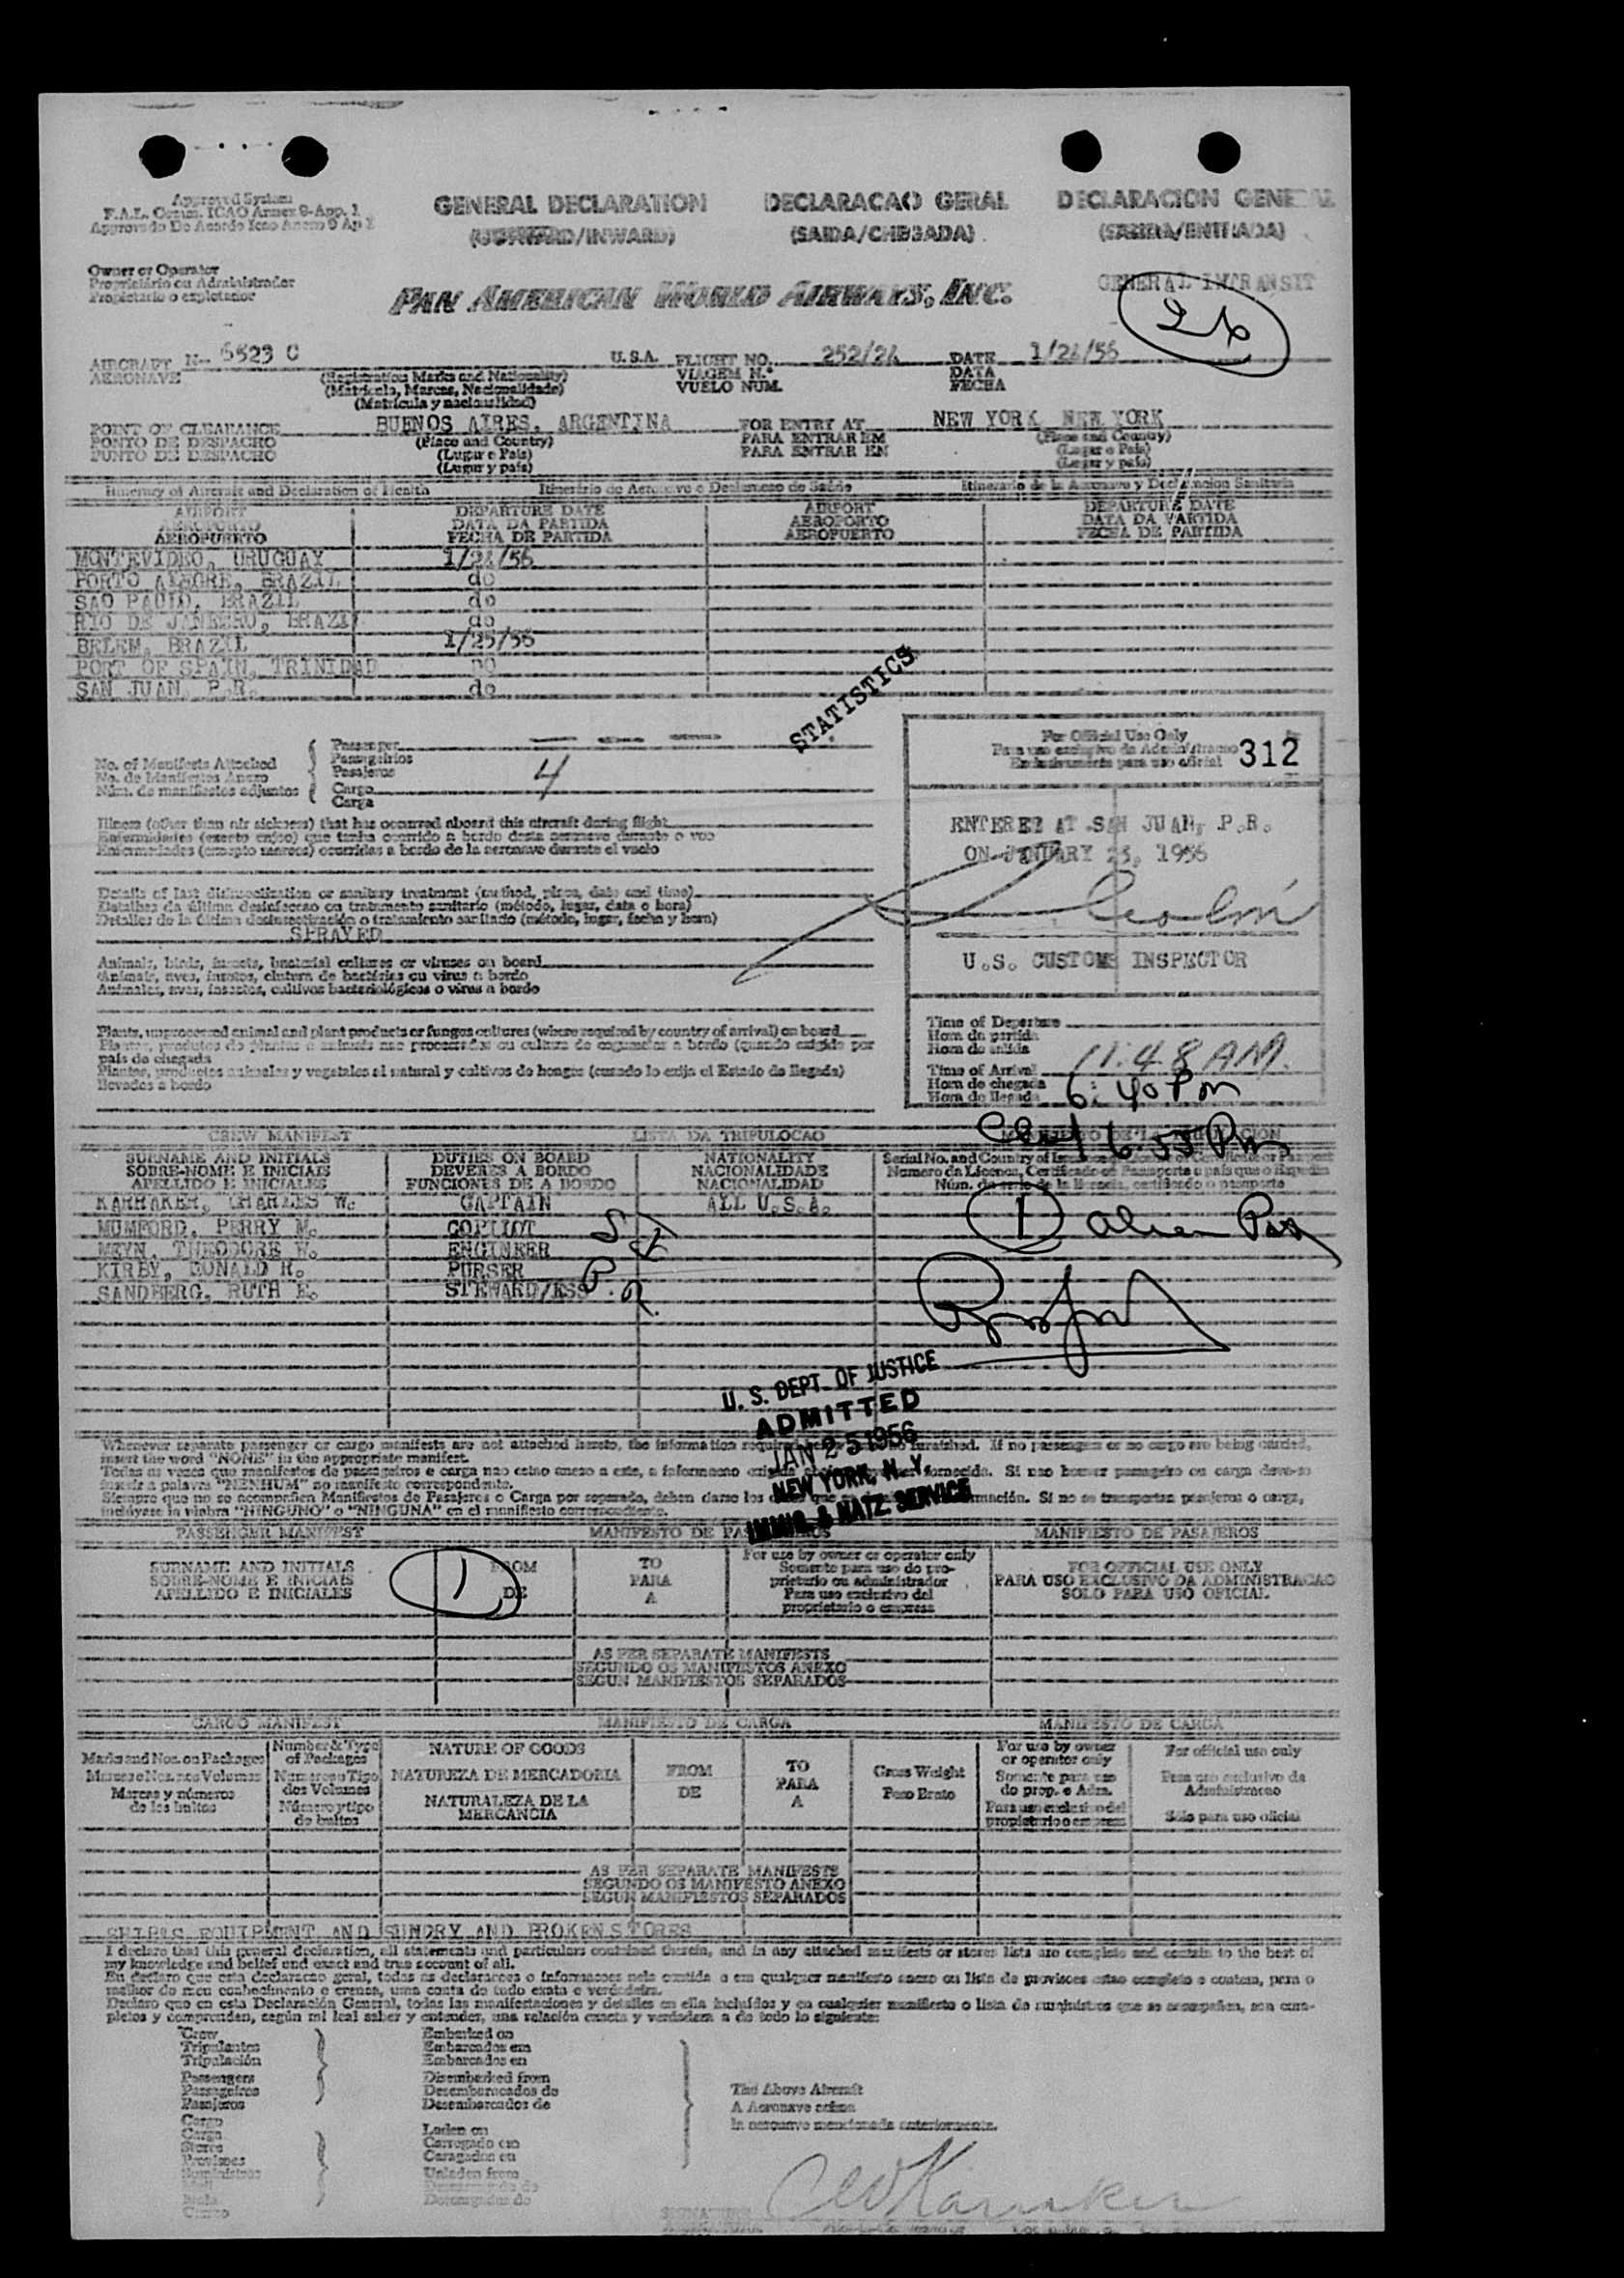 Approved System
F.A.L. Comm. ICAO Annex 9-App. 1
Approvado De Acordo Icao Anexo 9 Ap 1
GENERAL DECLARATION
(OUTWARD/INWARD)
DECLARACAO GERAL
(SAIDA/CHEGADA)
DECLARACION GENERAL
(SALIDA/ENTRADA)
Owner or Operator
Proprietário ou Administrador
Propietario o explotador
PAN AMERICAN WORLD AIRWAYS, INC.
GENERAL INTRANSIT
26
AIRCRAFT N-- 6523 C U.S.A. FLIGHT NO. 252/24 DATE 1/24/56
AERONAVE
(Registration Marks and Nationality)
(Matricula, Marcas, Nacionalidade)
(Matrícula y nacionalidad)
VIAGEM N.º
VUELO NUM.
DATA
FECHA
POINT OF CLEARANCE BUENOS AIRES, ARGENTINA FOR ENTRY AT NEW YORK, NEW YORK
PONTO DE DESPACHO (Place and Country) PARA ENTRAR EM (Place and Country)
PUNTO DE DESPACHO (Lugar e Pais) PARA ENTRAR EN (Lugar e Pais)
(Lugar y país) (Lugar y país)
Itinerary of Aircraft and Declaration of Health Itinerário de Aeronave e Declaracao de Saúde Itinerario de la Aeronave y Declaracion Sanitaria
AIRPORT DEPARTURE DATE AIRPORT DEPARTURE DATE
AEROPORTO DATA DA PARTIDA AEROPORTO DATA DA PARTIDA
AEROPUERTO FECHA DE PARTIDA AEROPUERTO FECHA DE PARTIDA
MONTEVIDEO, URUGUAY 1/24/56
PORTO ALEGRE, BRAZIL do
SAO PAULO, BRAZIL do
RIO DE JANEIRO, BRAZIL do
BELEM, BRAZIL 1/25/56
PORT OF SPAIN, TRINIDAD DO
SAN JUAN, P.R. do
STATISTICS
No. of Manifests Attached
No. de Manifestos Anexo
Núm. de manifiestos adjuntos
Passenger
Passageirios
Pasajeros
Cargo 4
Carga
For Official Use Only
Para uso exclusivo da Administracao
Exclusivamente para uso oficial
312
ENTERED AT SAN JUAN, P.R.
ON JANUARY 25, 1956
U.S. CUSTOMS INSPECTOR
Illness (other than air sickness) that has occurred aboard this aircraft during flight
Enfermidades (exceto enjoo) que tenha ocorrido a bordo desta aeronave durante o voo
Enfermedades (excepto mareos) ocurridas a bordo de la aeronave durante el vuelo
Details of last disinsectization or sanitary treatment (method, place, date and time)
Detalhes da última desinfeccao ou tratamento sanitario (método, lugar, data e hora)
Detalles de la última desinsectización o tratamiento sanitario (método, lugar, fecha y hora)
SPRAYED
Animals, birds, insects, bacterial cultures or viruses on board
Animais, aves, insetos, cultura de bactérias ou virus a bordo
Animales, aves, insectos, cultivos bacteriológicos o virus a bordo
Plants, unprocessed animal and plant products or fungus cultures (where required by country of arrival) on board
Plantas, produtos de plantas e animais nao processados ou cultura de cogumelos a bordo (quando exigido por
país de chegada
Plantas, productos animales y vegetales al natural y cultivos de hongos (cuando lo exija el Estado de llegada)
llevados a bordo
Time of Departure
Hora da partida
Hora de salida 11:48 AM.
Time of Arrival
Hora de chegada 6:40 Pm
Hora de llegada
6:55 Pm
CREW MANIFEST LISTA DA TRIPULOCAO
SURNAME AND INITIALS DUTIES ON BOARD NATIONALITY
SOBRE-NOME E INICIAIS DEVERES A BORDO NACIONALIDADE
APELLIDO E INICIALES FUNCIONES DE A BORDO NACIONALIDAD
Numero da Licenca, Certificado ou Passaporte e país que o Expediu
KARRAKER, CHARLES W. CAPTAIN ALL U.S.A.
MUMFORD, PERRY M. COPILOT
MEYN, THEODORE W. ENGINEER
KIRBY, DONALD R. PURSER
SANDBERG, RUTH E. STEWARD/ESS
SJ
P.R.
1 alien Pax
U. S. DEPT. OF JUSTICE
ADMITTED
JAN 25 1956
NEW YORK, N. Y.
IMMIG. & NATZ. SERVICE
Whenever separate passenger or cargo manifests are not attached hereto, the information required furnished. If no passengers or no cargo are being carried,
insert the word "NONE" in the appropriate manifest.
Todas as vezes que manifestos de passageiros e carga nao estao anexo a este, a fornecida. Si nao houver passageiro ou carga deve-se
inserir a palavra "NENHUM" no manifesto correspondente.
Siempre que no se acompañen Manifiestos de Pasajeros o Carga por separado, deben darse los Si no se transportan pasajeros o carga,
inclúyase la palabra "NINGUNO" o "NINGUNA" en el manifiesto correspondiente.
PASSENGER MANIFEST MANIFESTO DE PASSAGEIROS MANIFIESTO DE PASAJEROS
SURNAME AND INITIALS
SOBRE-NOME E INICIAIS
APELLIDO E INICIALES
1
FROM
DE
TO
PARA
A
For use by owner or operator only
Somente para uso do pro-
prietario ou administrador
Para uso exclusivo del
proprietario o empresa
FOR OFFICIAL USE ONLY
PARA USO EXCLUSIVO DA ADMINISTRACAO
SOLO PARA USO OFICIAL
AS PER SEPARATE MANIFESTS
SEGUNDO OS MANIFESTOS ANEXO
SEGUN MANIFIESTOS SEPARADOS
CARGO MANIFEST MANIFIESTO DE CARGA MANIFESTO DE CARGA
Marks and Nos. on Packages
Marcas e Nos. nos Volumes
Marcas y números
de los bultos
Number & Type
of Packages
Numero ou Tipo
dos Volumes
Número y tipo
de bultos
NATURE OF GOODS
NATUREZA DE MERCADORIA
NATURALEZA DE LA
MERCANCIA
FROM
DE
TO
PARA
A
Gross Weight
Peso Bruto
For use by owner
or operator only
Somente para uso
do prop. e Adm.
Para uso exclusivo del
propietario o empresa
For official use only
Para uso exclusivo da
Administracao
Sólo para uso oficial
AS PER SEPARATE MANIFESTS
SEGUNDO OS MANIFESTO ANEXO
SEGUN MANIFIESTOS SEPARADOS
SHIP'S EQUIPMENT AND SUNDRY AND BROKEN STORES
I declare that this general declaration, all statements and particulars contained therein, and in any attached manifests or stores lists are complete and contain to the best of
my knowledge and belief and exact and true account of all.
Eu declaro que esta declaracao geral, todas as declaracoes e informacoes nela contida e em qualquer manifesto anexo ou lista de provisoes estao completo e contem, para o
melhor do meu conhecimento e crenca, uma conta de todo exata e verdadeira.
Declaro que en esta Declaración General, todas las manifestaciones y detalles en ella incluidos y en cualquier manifiesto o lista de suministros que se acompañen, son com-
pletos y comprenden, según mi leal saber y entender, una relación exacta y verdadera a de todo lo siguiente:
Crew
Tripulantes
Tripulación
Passengers
Passageiros
Pasajeros
Cargo
Carga
Stores
Provisoes
Suministros
Embarked on
Embarcados em
Embarcados en
Disembarked from
Desembarcados de
Desembarcados de
Laden on
Carregado em
Cargados en
Unladen from
The Above Aircraft
A Aeronave acima
la aeronave mencionada anteriormente.
CW Karraker